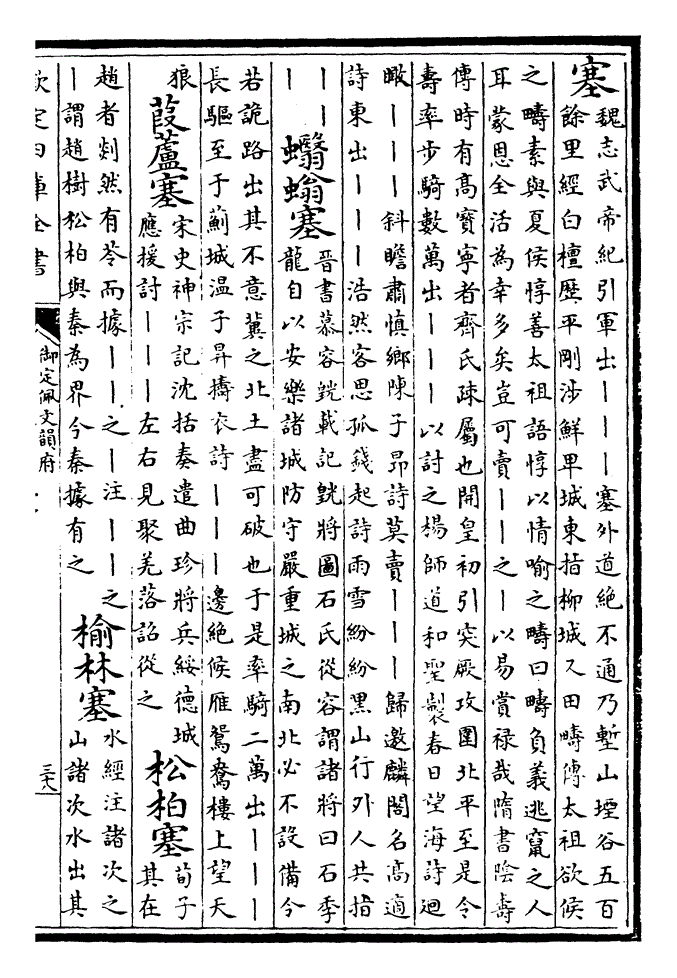 塞
魏志武帝紀引軍出丨丨丨塞外道絶不通乃塹山堙谷五百
餘里經白檀歷平剛涉鮮卑城東指柳城又田疇傳太祖欲候
之疇素與夏侯惇善太祖語惇以情喻之疇曰疇負義逃竄之人
耳蒙恩全活為幸多矣豈可賣丨丨之丨以易賞禄哉隋書陰壽
傳時有高寶寧者齊氏疎屬也開皇初引突厥攻圍北平至是令
壽率步騎數萬出丨丨丨以討之楊師道和聖製春日望海詩迴
瞰丨丨丨斜瞻肅慎鄉陳子昂詩莫賣丨丨丨歸邀麟閣名高適
詩東出丨丨丨浩然客思孤錢起詩雨雪紛紛黒山行外人共指
丨丨
丨
蠮螉塞
晉書慕容皝載記皝將圖石氏從容謂諸將曰石季
龍自以安樂諸城防守嚴重城之南北必不設備今
若詭路出其不意冀之北土盡可破也于是率騎二萬出丨丨丨
長驅至于薊城温子昇擣衣詩丨丨丨邊絶候雁鴛鴦樓上望天
狼
葭蘆塞
宋史神宗記沈括奏遣曲珍將兵綏德城
應援討丨丨丨左右見聚羌落詔從之
松柏塞
荀子
其在
趙者剡然有苓而據丨丨之丨注丨丨之
丨謂趙樹松柏與秦為界今秦據有之
榆林塞
水經注諸次之
山諸次水出其
欽定四庫全書
御定佩文韻府
三十八